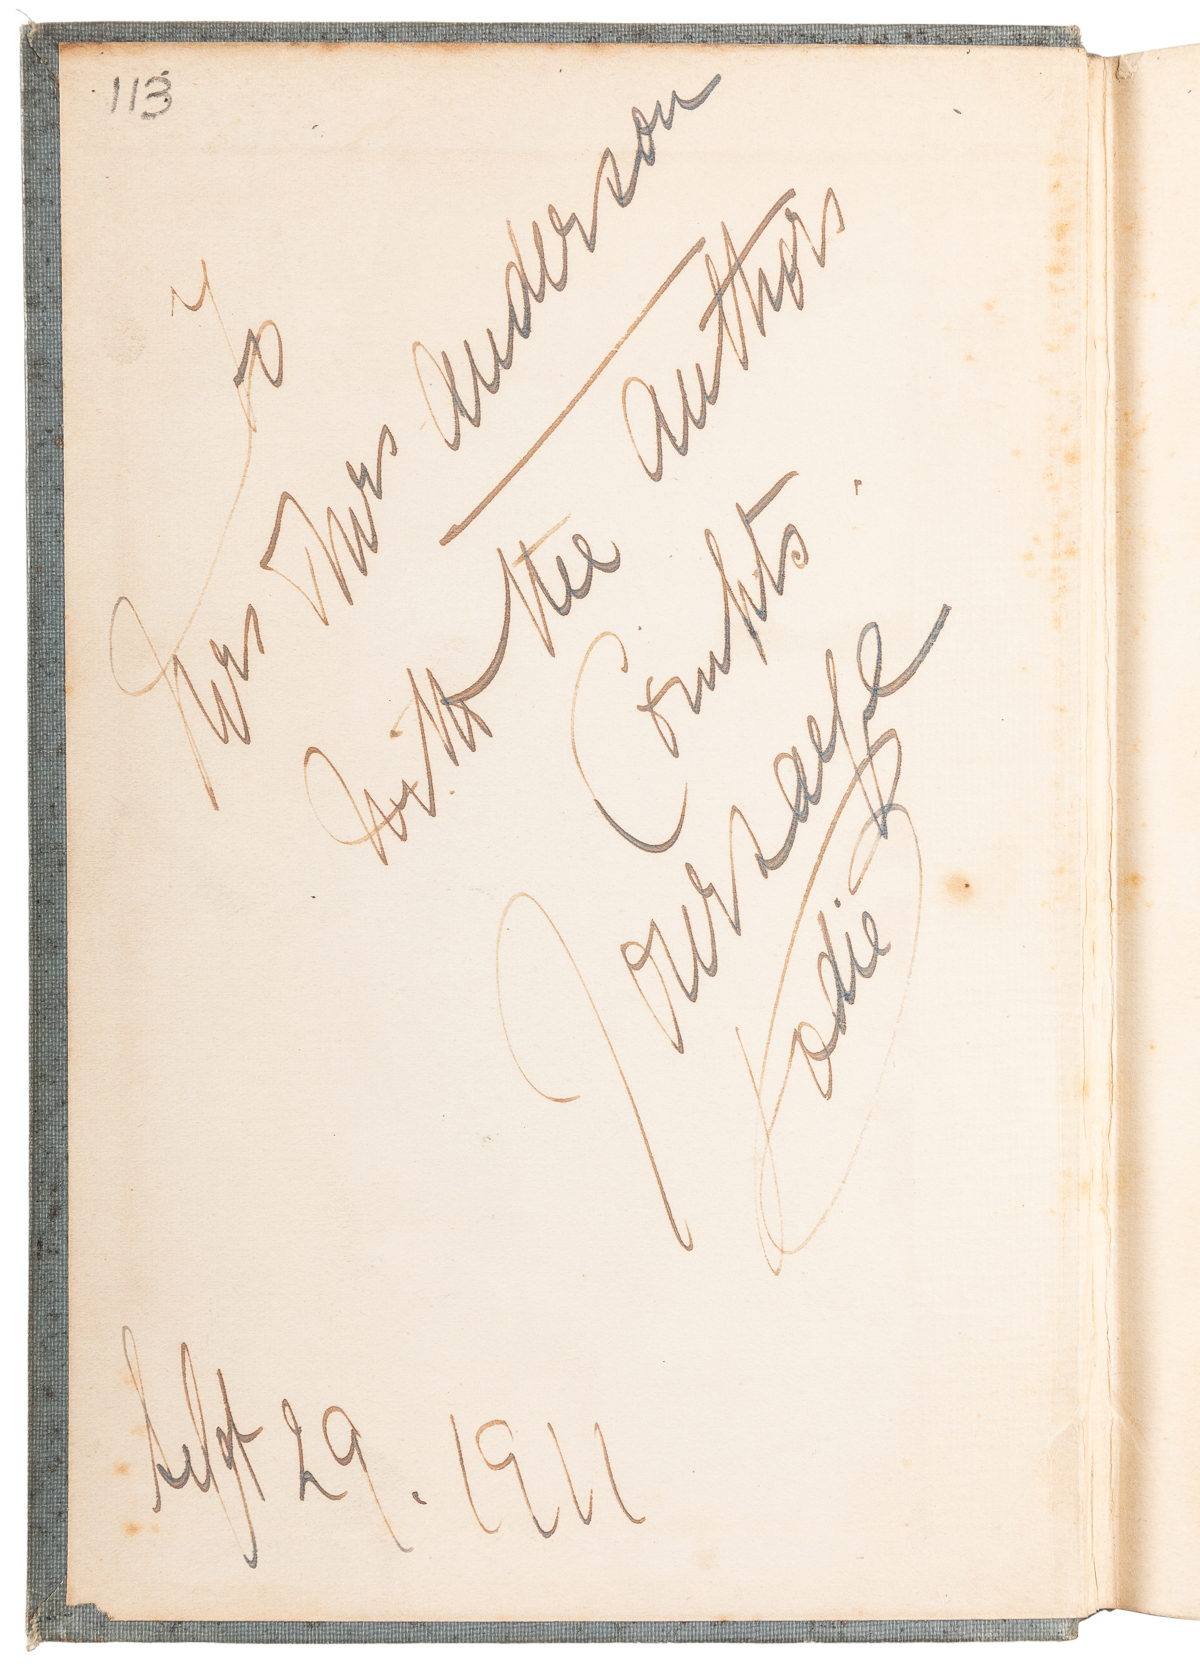 113
To
Mrs Anderson
with the Authors
Compts.
Yours aye
Bodie
Sept 29. 1911